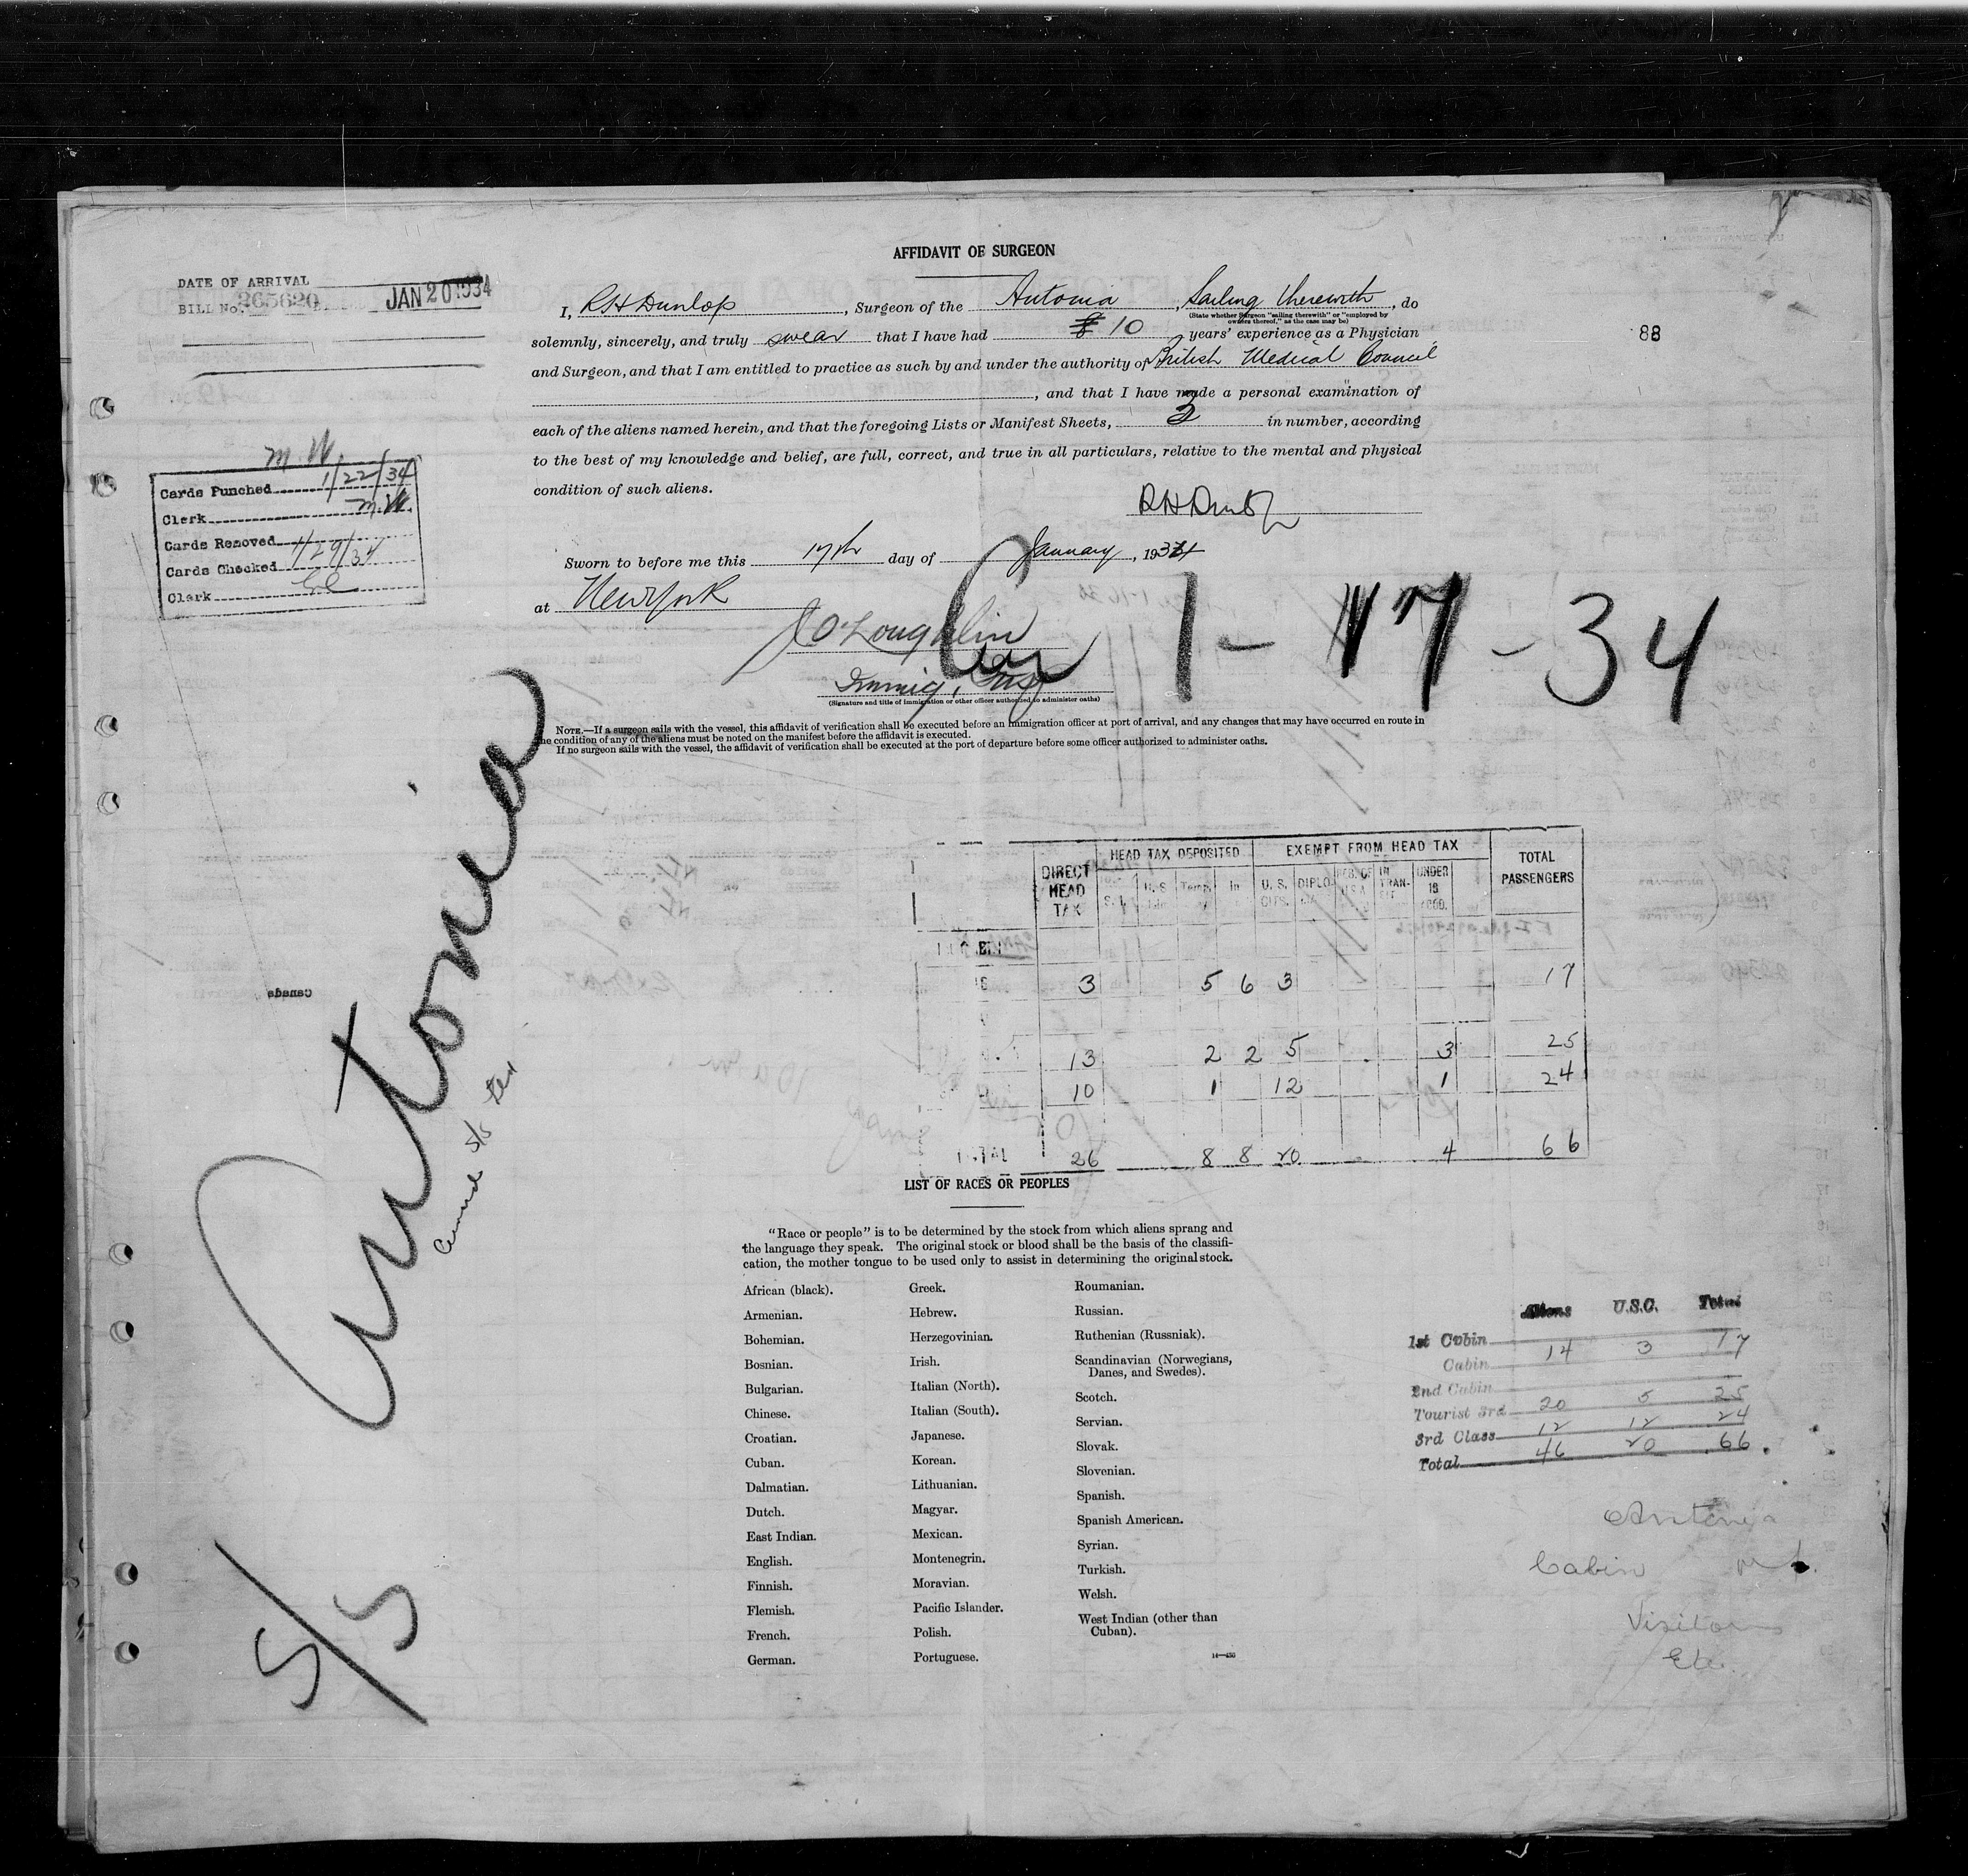 AFFIDAVIT OF SURGEON
DATE OF ARRIVAL JAN 20 1934
BILL No. 265620
I, RH Dunlop, Surgeon of the Antonia, Sailing therewith, do
(State whether Surgeon "sailing therewith" or "employed by
owners thereof," as the case may be)
solemnly, sincerely, and truly swear that I have had 10 years' experience as a Physician
and Surgeon, and that I am entitled to practice as such by and under the authority of British Medical Council
, and that I have made a personal examination of
each of the aliens named herein, and that the foregoing Lists or Manifest Sheets, in number, according
to the best of my knowledge and belief, are full, correct, and true in all particulars, relative to the mental and physical
condition of such aliens.
RH Dunlop
88
Sworn to before me this 17th day of January, 1934
at New York
J O'Loughlin
Immig. Insp
(Signature and title of immigration or other officer authorized to administer oaths)
1-17-34
NOTE.—If a surgeon sails with the vessel, this affidavit of verification shall be executed before an immigration officer at port of arrival, and any changes that may have occurred en route in
the condition of any of the aliens must be noted on the manifest before the affidavit is executed.
If no surgeon sails with the vessel, the affidavit of verification shall be executed at the port of departure before some officer authorized to administer oaths.
M.W.
Cards Punched 1/22/34
Clerk M.W.
Cards Removed
Cards Checked 1/29/34
Clerk
Antonia
S/S
Canada
DIRECT HEAD TAX
HEAD TAX DEPOSITED
EXEMPT FROM HEAD TAX
TOTAL PASSENGERS
S.I. U.S. Temp. In U.S. CITS. DIPLO. RES. OF U.S.A. IN TRANSIT UNDER 16 ACCD.
3 5 6 3 17
13 2 2 5 3 25
10 1 12 1 24
TOTAL 26 8 8 20 4 66
LIST OF RACES OR PEOPLES
"Race or people" is to be determined by the stock from which aliens sprang and
the language they speak. The original stock or blood shall be the basis of the classifi-
cation, the mother tongue to be used only to assist in determining the original stock.
African (black).
Armenian.
Bohemian.
Bosnian.
Bulgarian.
Chinese.
Croatian.
Cuban.
Dalmatian.
Dutch.
East Indian.
English.
Finnish.
Flemish.
French.
German.
Greek.
Hebrew.
Herzegovinian.
Irish.
Italian (North).
Italian (South).
Japanese.
Korean.
Lithuanian.
Magyar.
Mexican.
Montenegrin.
Moravian.
Pacific Islander.
Polish.
Portuguese.
Roumanian.
Russian.
Ruthenian (Russniak).
Scandinavian (Norwegians,
Danes, and Swedes).
Scotch.
Servian.
Slovak.
Slovenian.
Spanish.
Spanish American.
Syrian.
Turkish.
Welsh.
West Indian (other than
Cuban).
14—450
Aliens U.S.C. Total
1st Cabin 14 3 17
Cabin
2nd Cabin
Tourist 3rd 20 5 25
3rd Class 12 12 24
Total 46 20 66
Antonia
Cabin
Visitors
Etc.